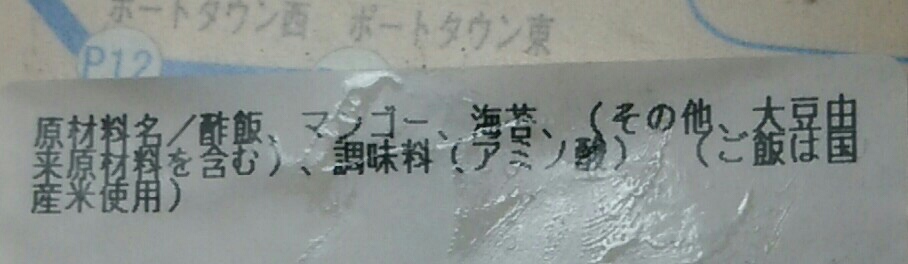 ポートタウン西 ポートタウン東
P12
原材料名/酢飯、マンゴー、海苔、(その他、大豆由
来原材料を含む)、調味料(アミノ酸) (ご飯は国
産米使用)